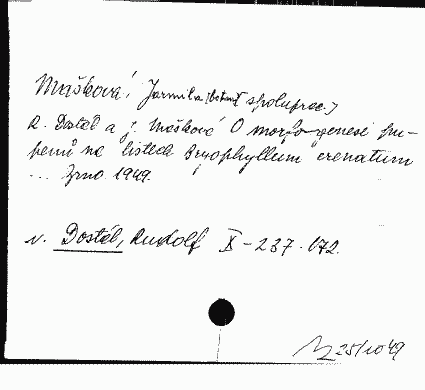 Mášková, Jarmila (botan. spoluprac.)
R. Dostál a J. Mášková O morfogenesi pu-
penů na listech Bryophyllum crenatum
... Brno 1949.
v. Dostál, Rudolf X-237.072.
25/10 49